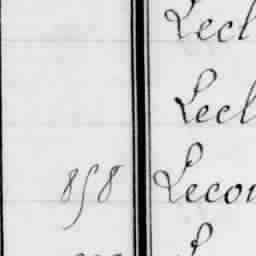 Lecl
Lecl
858 Lecon